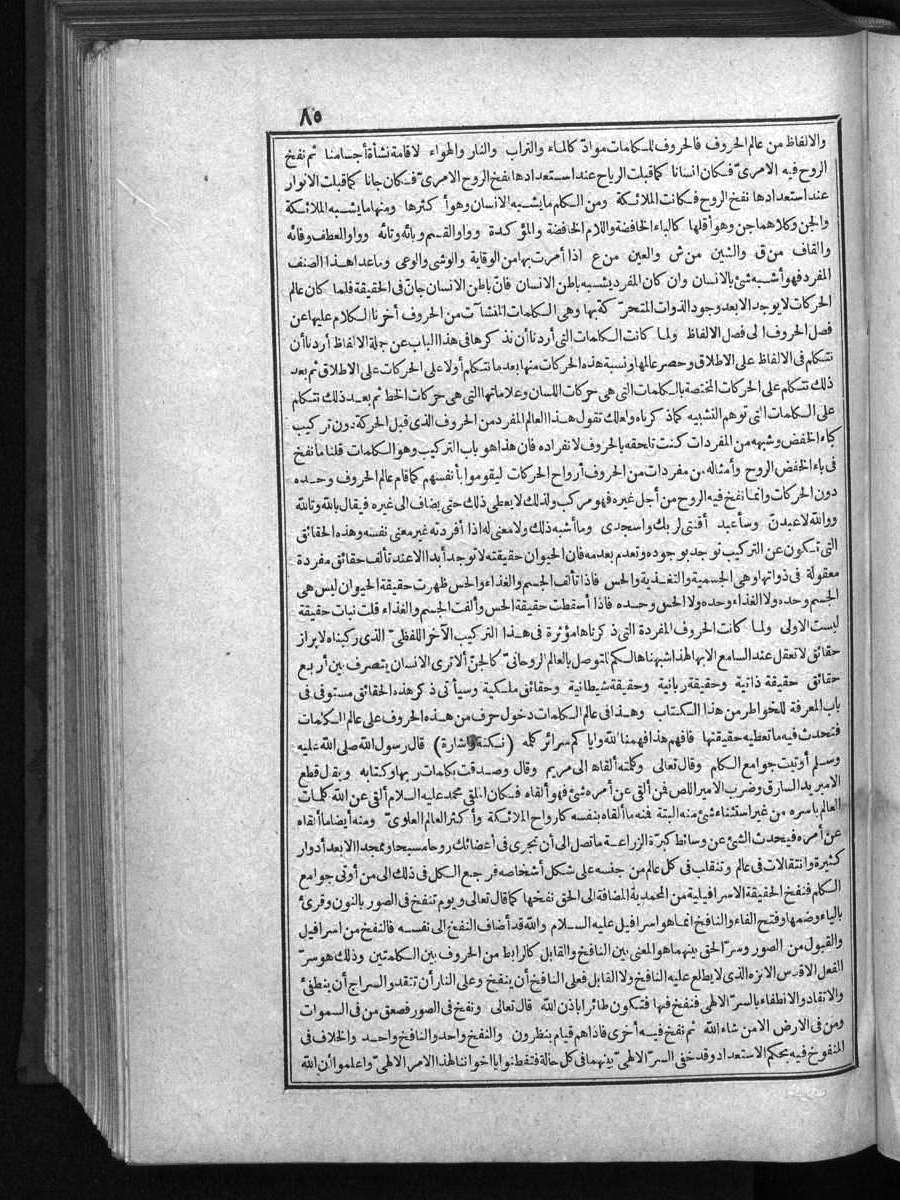 ٨٥
والالفاظ من عالم الحروف فالحروف للكلمات موادّ كالماء والتراب والنار والهواء لاقامة نشأة أجسامنا ثم نفخ
الروح فيه الامرىّ فكان انسانا كما قبلت الرياح عند استعدادها نفخ الروح الامرىّ فكان جانا كما قبلت الانوار
عند استعدادها نفخ الروح فكانت الملائكة ومن الكلم ما يشبه الانسان وهو أكثرها ومنها ما يشبه الملائكة
والجن وكلاهما جن وهو أقلها كالباء الخافضة واللام الخافضة والمؤكدة وواو القسم وبائه وتائه وواو العطف وفائه
والقاف من ق والشين من ش والعين من ع اذا أمرت بها من الوقاية والوشى والوعى وما عدا هذا الصنف
المفرد فهو أشبه شئ بالانسان وان كان المفرد يشبه باطن الانسان فانّ باطن الانسان جانّ فى الحقيقة فلما كان عالم
الحركات لا يوجد الا بعد وجود الذوات المتحرّكة بها وهى الكلمات المنشآت من الحروف أخرنا الكلام عليها عن
فصل الحروف الى فصل الالفاظ ولما كانت الكلمات التى أردنا أن نذكرها فى هذا الباب عن جلة الالفاظ أردنا أن
نتكلم فى الالفاظ على الاطلاق وحصر عالمها ونسبة هذه الحركات منها بعد ما نتكلم أولا على الحركات على الاطلاق ثم بعد
ذلك نتكلم على الحركات المختصة بالكلمات التى هى حركات اللسان وعلاماتها التى هى حركات الخط ثم بعد ذلك نتكلم
على الكلمات التى توهم التشبيه كما ذكرناه ولعلك تقول هذا العالم المفرد من الحروف الذى قبل الحركة دون تركيب
كباء الخفض وشبهه من المفردات كنت تلحقه بالحروف لانفراده فان هذا هو باب التركيب وهو الكلمات قلنا ما نفخ
فى باء الخفض الروح وأمثاله من مفردات من الحروف أرواح الحركات ليقوموا بأنفسهم كما قام عالم الحروف وحده
دون الحركات وانما نفخ فيه الروح من أجل غيره فهو مركب ولذلك لا يعطى ذلك حتى يضاف الى غيره فيقال بالله وتالله
ووالله لاعبدنّ وسأعبد أقنتى لربك واسجدى وما أشبه ذلك ولا معنى له اذا أفردته غير معنى نفسه وهذه الحقائق
التى تتكون عن التركيب توجد بوجوده وتعدم بعدمه فان الحيوان حقيقته لا توجد أبدا الا عند تألف حقائق مفردة
معقولة فى ذواتها وهى الجسمية والتغذية والحس فاذا تألف الجسم والغذاء والحس ظهرت حقيقة الحيوان ليس هى
الجسم وحده ولا الغذاء وحده ولا الحس وحده فاذا أسقطت حقيقة الحس وألفت الجسم والغذاء قلت نبات حقيقة
ليست الاولى ولما كانت الحروف المفردة التى ذكرناها مؤثرة فى هذا التركيب الآخر اللفظىّ الذى ركبناه لابراز
حقائق لا تعقل عند السامع الا بها لهذا شبهناها لكم لتوصل بالعالم الروحانىّ كالجنّ ألا ترى الانسان يتصرف بين أربع
حقائق حقيقة ذاتية وحقيقة ربانية وحقيقة شيطانية وحقائق ملكية وسيأتى ذكر هذه الحقائق مستوفى فى
باب المعرفة للخواطر من هذا الكتاب وهذا فى عالم الكلمات دخول حرف من هذه الحروف على عالم الكلمات
فتحدث فيه ما تعطيه حقيقتها فافهم هذا فهمنا الله واياكم سرائر كلمه (نكتة واشارة) قال رسول الله صلى الله عليه
وسلم أوتيت جوامع الكلم وقال تعالى وكلمته ألقاها الى مريم وقال وصدقت بكلمات ربها وكتابه ويقال قطع
الامير يد السارق وضرب الامير اللص فمن ألقى عن أمره شئ فهو ألقاه فكان الملقى محمد عليه السلام ألقى عن الله كلمات
العالم باسره من غير استثناء شئ منه البتة فمنه ما ألقاه بنفسه كارواح الملائكة وأكثر العالم العلوىّ ومنه أيضا ما ألقاه
عن أمره فيحدث الشئ عن وسائط كبرّة الزراعة ما تصل الى أن تجرى فى أعضائك روحا مسبحا وممجدا الا بعد أدوار
كثيرة وانتقالات فى عالم وتنقلب فى كل عالم من جنسه على شكل أشخاصه فرجع الكل فى ذلك الى من أوتى جوامع
الكلم فنفخ الحقيقة الاسرافيلية من المحمدية المضافة الى الحق نفخها كما قال تعالى ويوم ننفخ فى الصور بالنون وقرئ
بالياء وضمها وفتح الفاء والنافخ انما هو اسرافيل عليه السلام والله قد أضاف النفخ الى نفسه فالنفخ من اسرافيل
والقبول من الصور وسرّ الحق بينهما هو المعنى بين النافخ والقابل كالرابط من الحروف بين الكلمتين وذلك هو سرّ
الفعل الاقدس الانزه الذى لا يطلع عليه النافخ ولا القابل فعلى النافخ أن ينفخ وعلى النار أن تتقد والسراج أن ينطفئ
والاتقاد والانطفاء بالسرّ الالهى فنفخ فيها فتكون طائرا باذن الله قال تعالى ونفخ فى الصور فصعق من فى السموات
ومن فى الارض الا من شاء الله ثم نفخ فيه أخرى فاذا هم قيام ينظرون والنفخ واحد والنافخ واحد والخلاف فى
المنفوخ فيه بحكم الاستعداد وقد خفى السرّ الالهىّ بينهما فى كل حالة فتفطنوا يا اخواننا لهذا الامر الالهىّ واعلموا أن الله